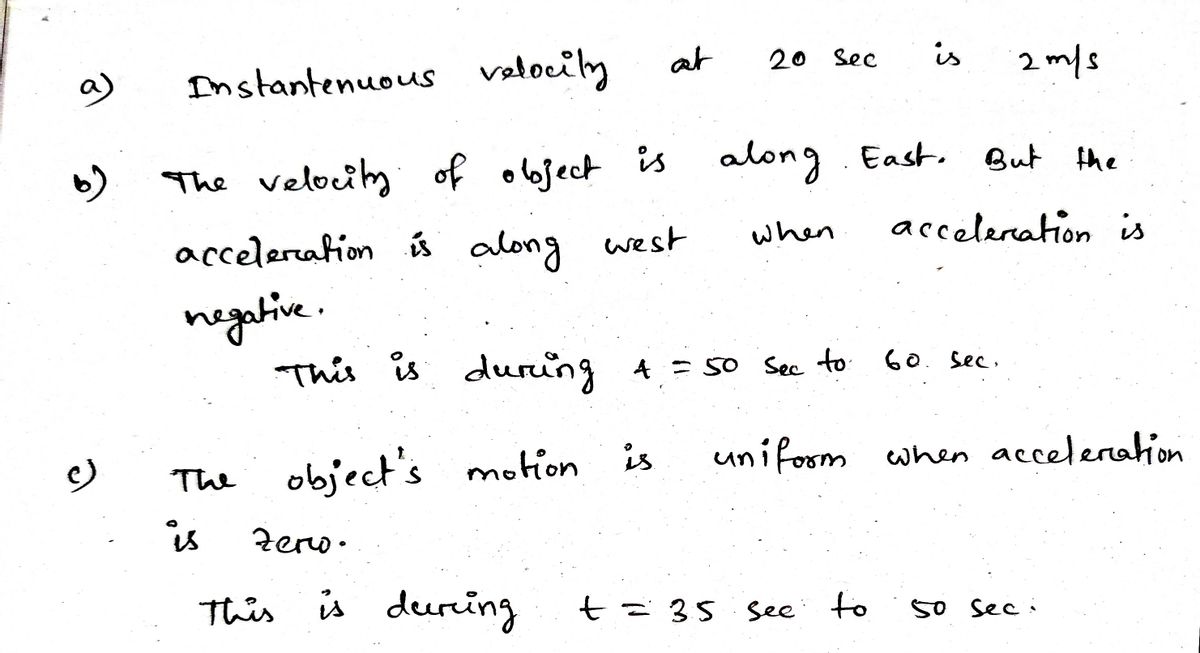 a) Instantenuous velocity at 20 sec is 2 m/s
b) The velocity of object is along East. But the
acceleration is along west when acceleration is
negative.
This is during t = 50 sec to 60 sec.
c) The object's motion is uniform when acceleration
is zero.
This is during t = 35 sec to 50 sec.